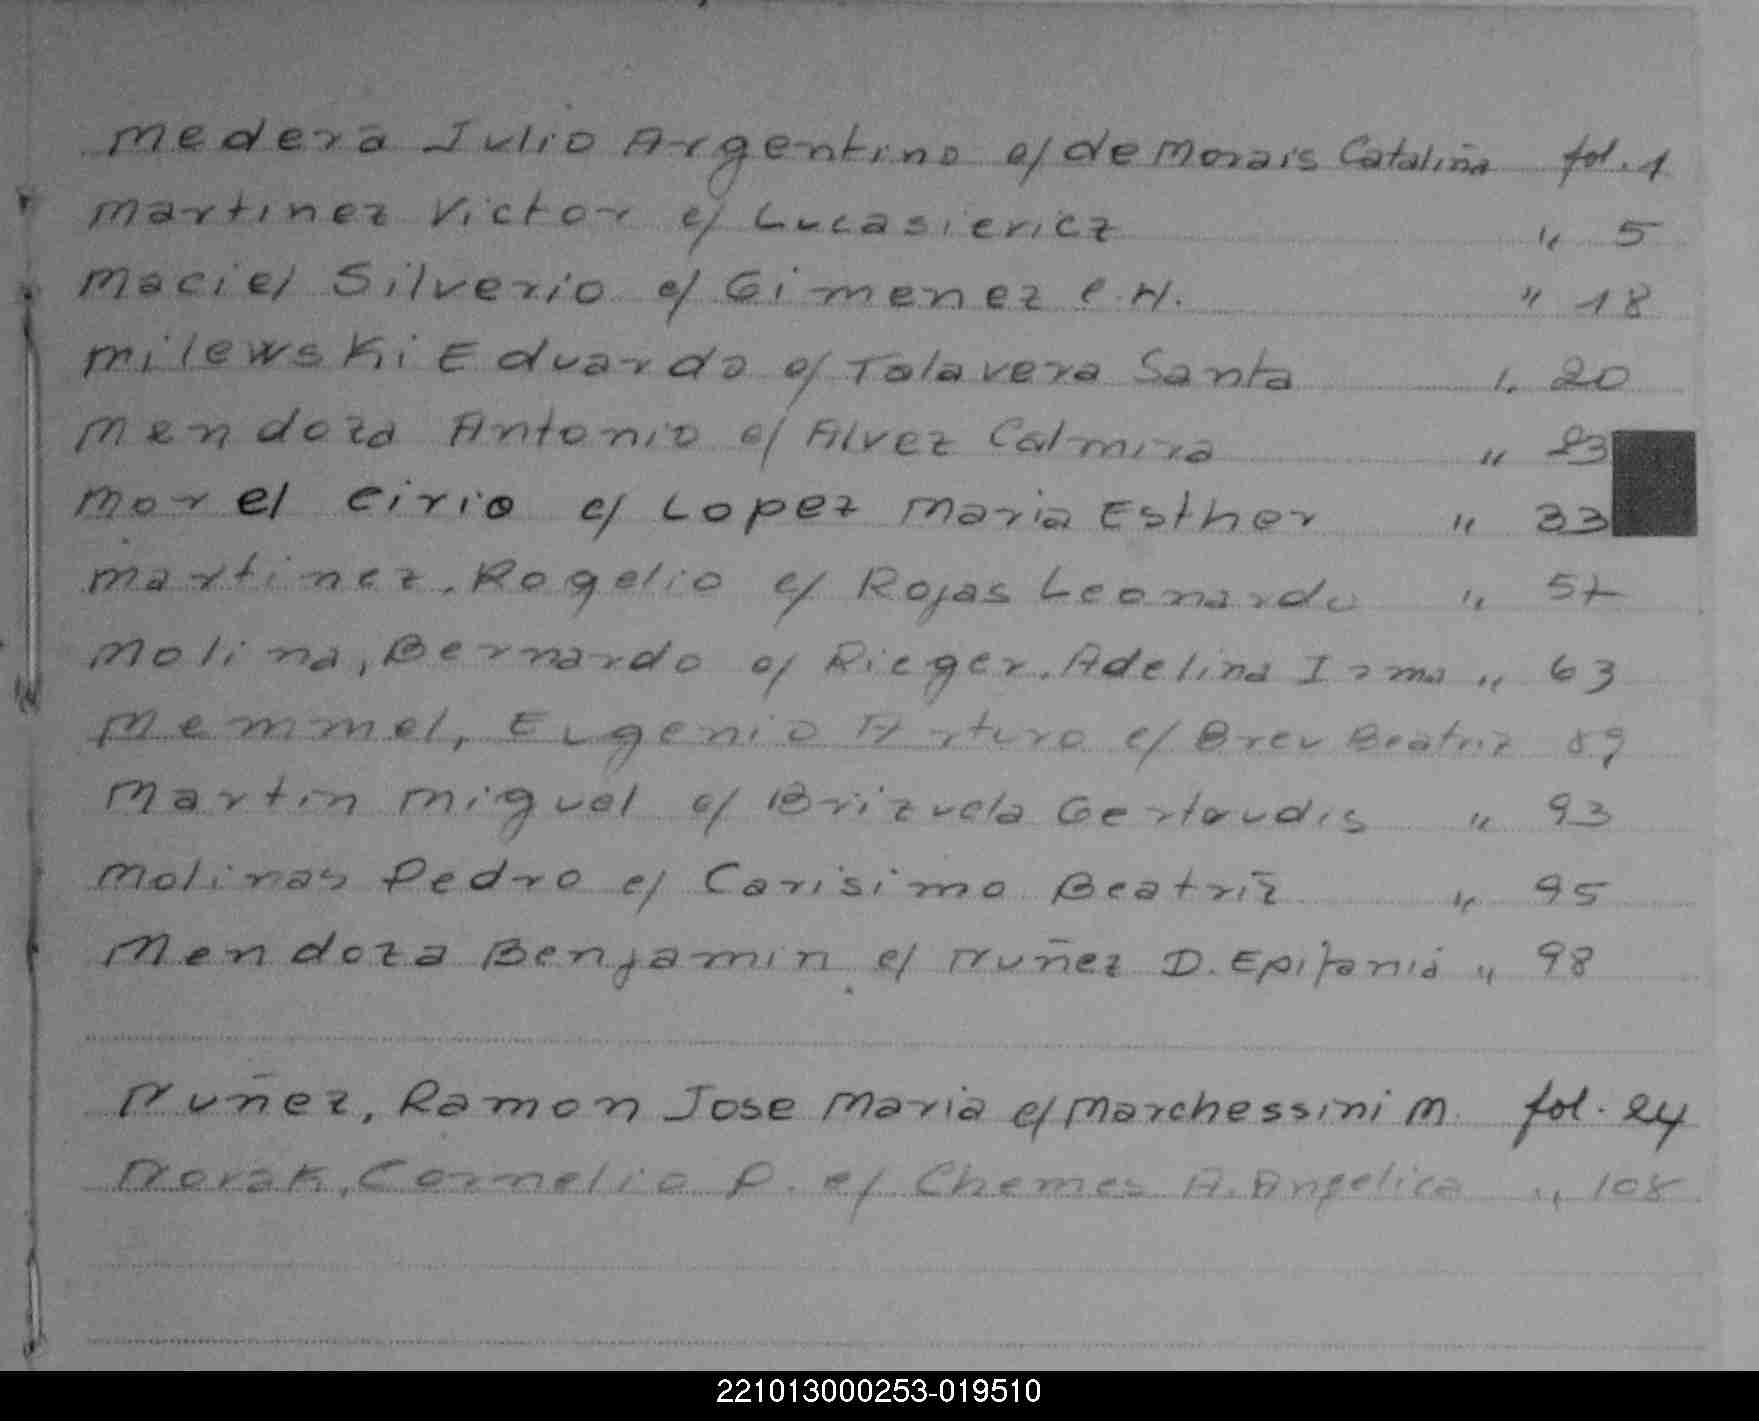 Medera Julio Argentino c/ de Morais Cataliña fol. 1
Martinez Victor c/ Lucasievicz " 5
Maciel Silverio c/ Gimenez e.H. " 18
Milewski Eduardo c/ Talavera Santa " 20
Mendoza Antonio c/ Alvez Calmira " 23
Morel Cirio c/ Lopez Maria Esther " 33
Martinez, Rogelio c/ Rojas Leonarda " 57
Molina, Bernardo c/ Rieger, Adelina Irma " 63
Memmel, Eugenio Arturo c/ Breu Beatriz 89
Martin Miguel c/ Brizuela Gertrudis " 93
Molinas Pedro c/ Carisimo Beatriz " 95
Mendoza Benjamin c/ Nuñez D. Epifania " 98
Nuñez, Ramon Jose Maria c/ Marchessini M. fol. 24
Novak, Cornelio P. c/ Chemes A. Angelica " 108
221013000253-019510